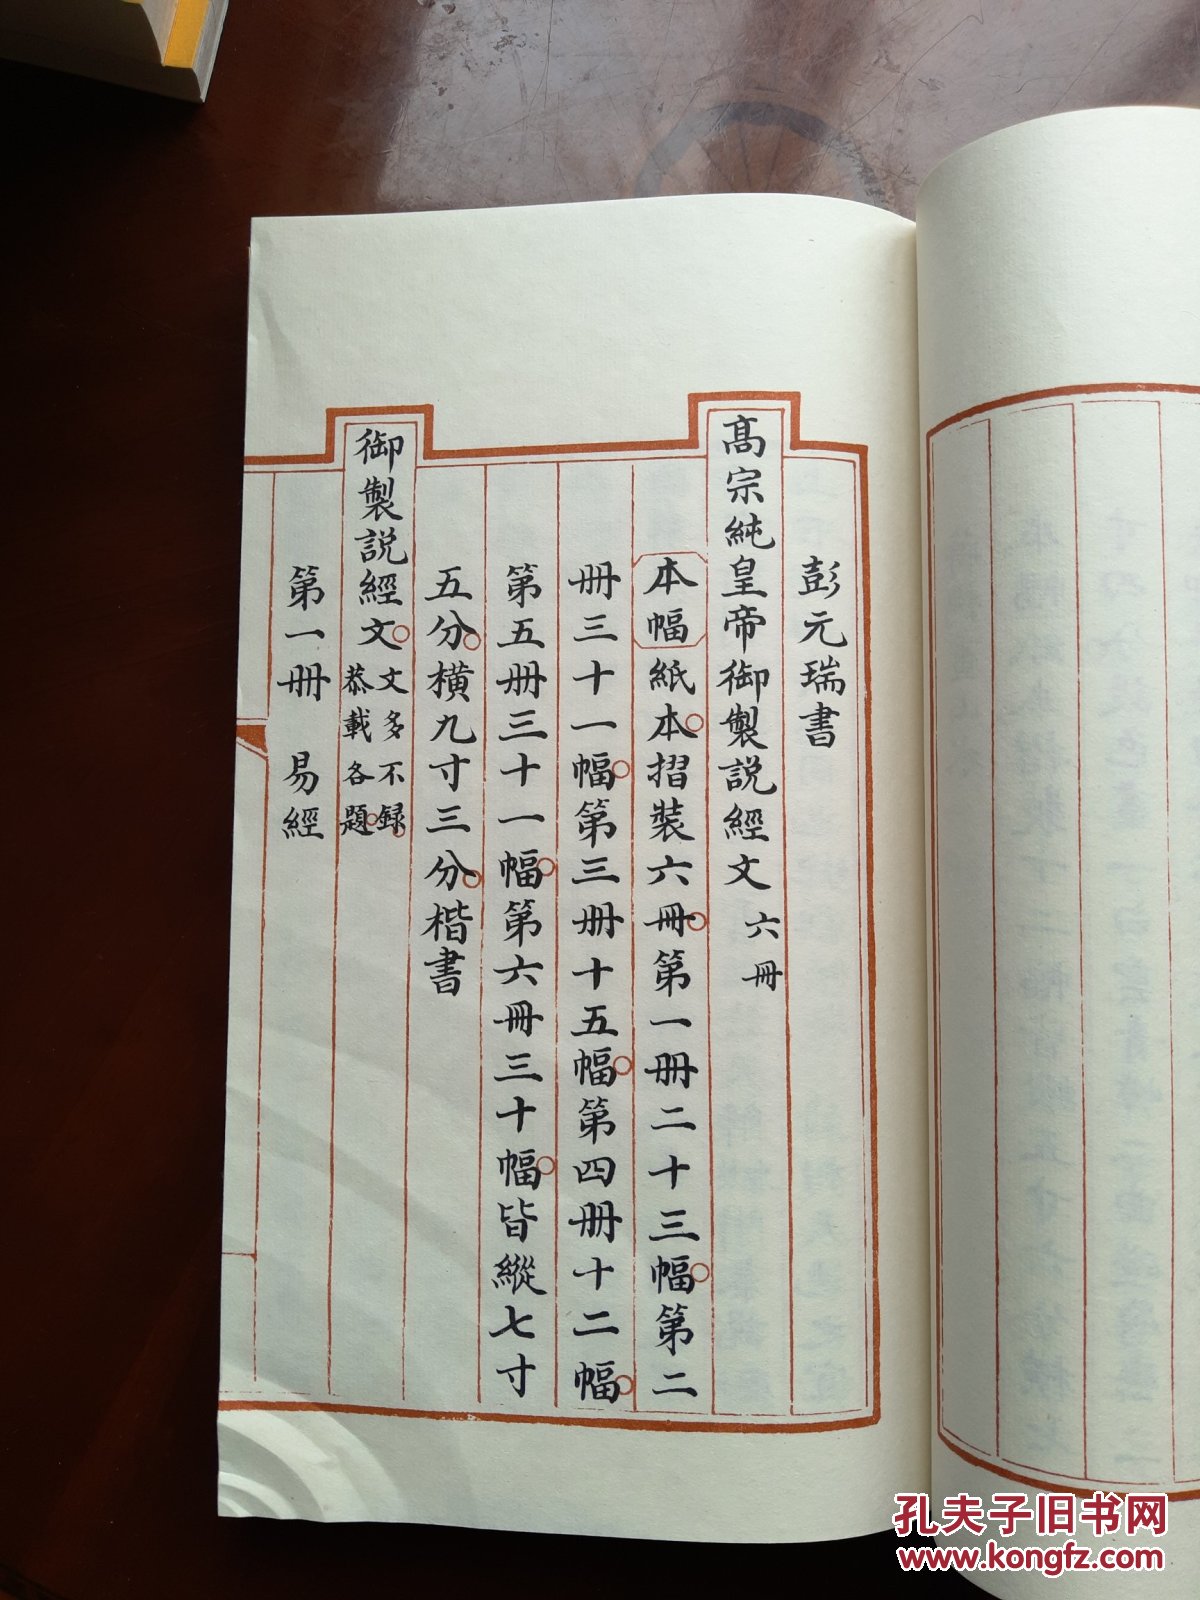 彭元瑞書
高宗純皇帝御製説經文 六冊
本幅紙本摺裝六冊第一冊二十三幅第二
冊三十一幅第三冊十五幅第四冊十二幅
第五冊三十一幅第六冊三十幅皆縱七寸
五分橫九寸三分楷書
御製説經文 文多不録
恭載各題
第一冊 易經
孔夫子旧书网
www.kongfz.com